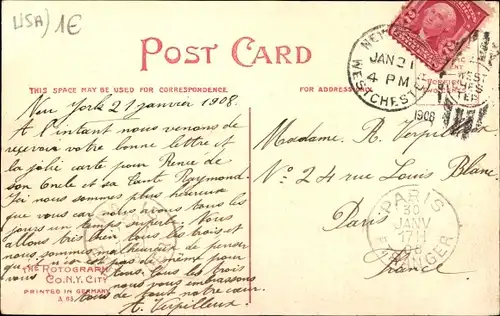 USA) 1€
POST CARD
NEW
JAN 21
4 PM
WESTCHESTER
1908
WEST
CHES
TER
THIS SPACE MAY BE USED FOR CORRESPONDENCE.
FOR ADDRESS ONLY.
New York 21 janvier 1908.
A l'instant nous venons de
recevoir votre bonne lettre et
la jolie carte pour Renee de
son Oncle et sa Tante Raymond.
J'ai nous sommes plus heureux
que vous car nous avons tous les
jours un temps superbe. Nous
allons très bien tous les trois et
nous sommes malheureux de penser
que ce n'est pas de même pour
vous. Tous les trois nous embrassons
tous de tout notre cœur.
A. Verpilleux
Madame A. Verpilleux
No 24 rue Louis Blanc
Paris
France
PARIS
30
JANV
08
ETRANGER
THE ROTOGRAPH
CO. N.Y. CITY
PRINTED IN GERMANY